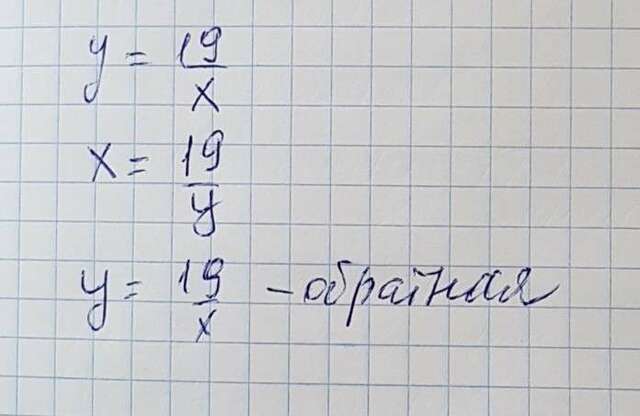 y = 19/x
x = 19/y
y = 19/x - обратная